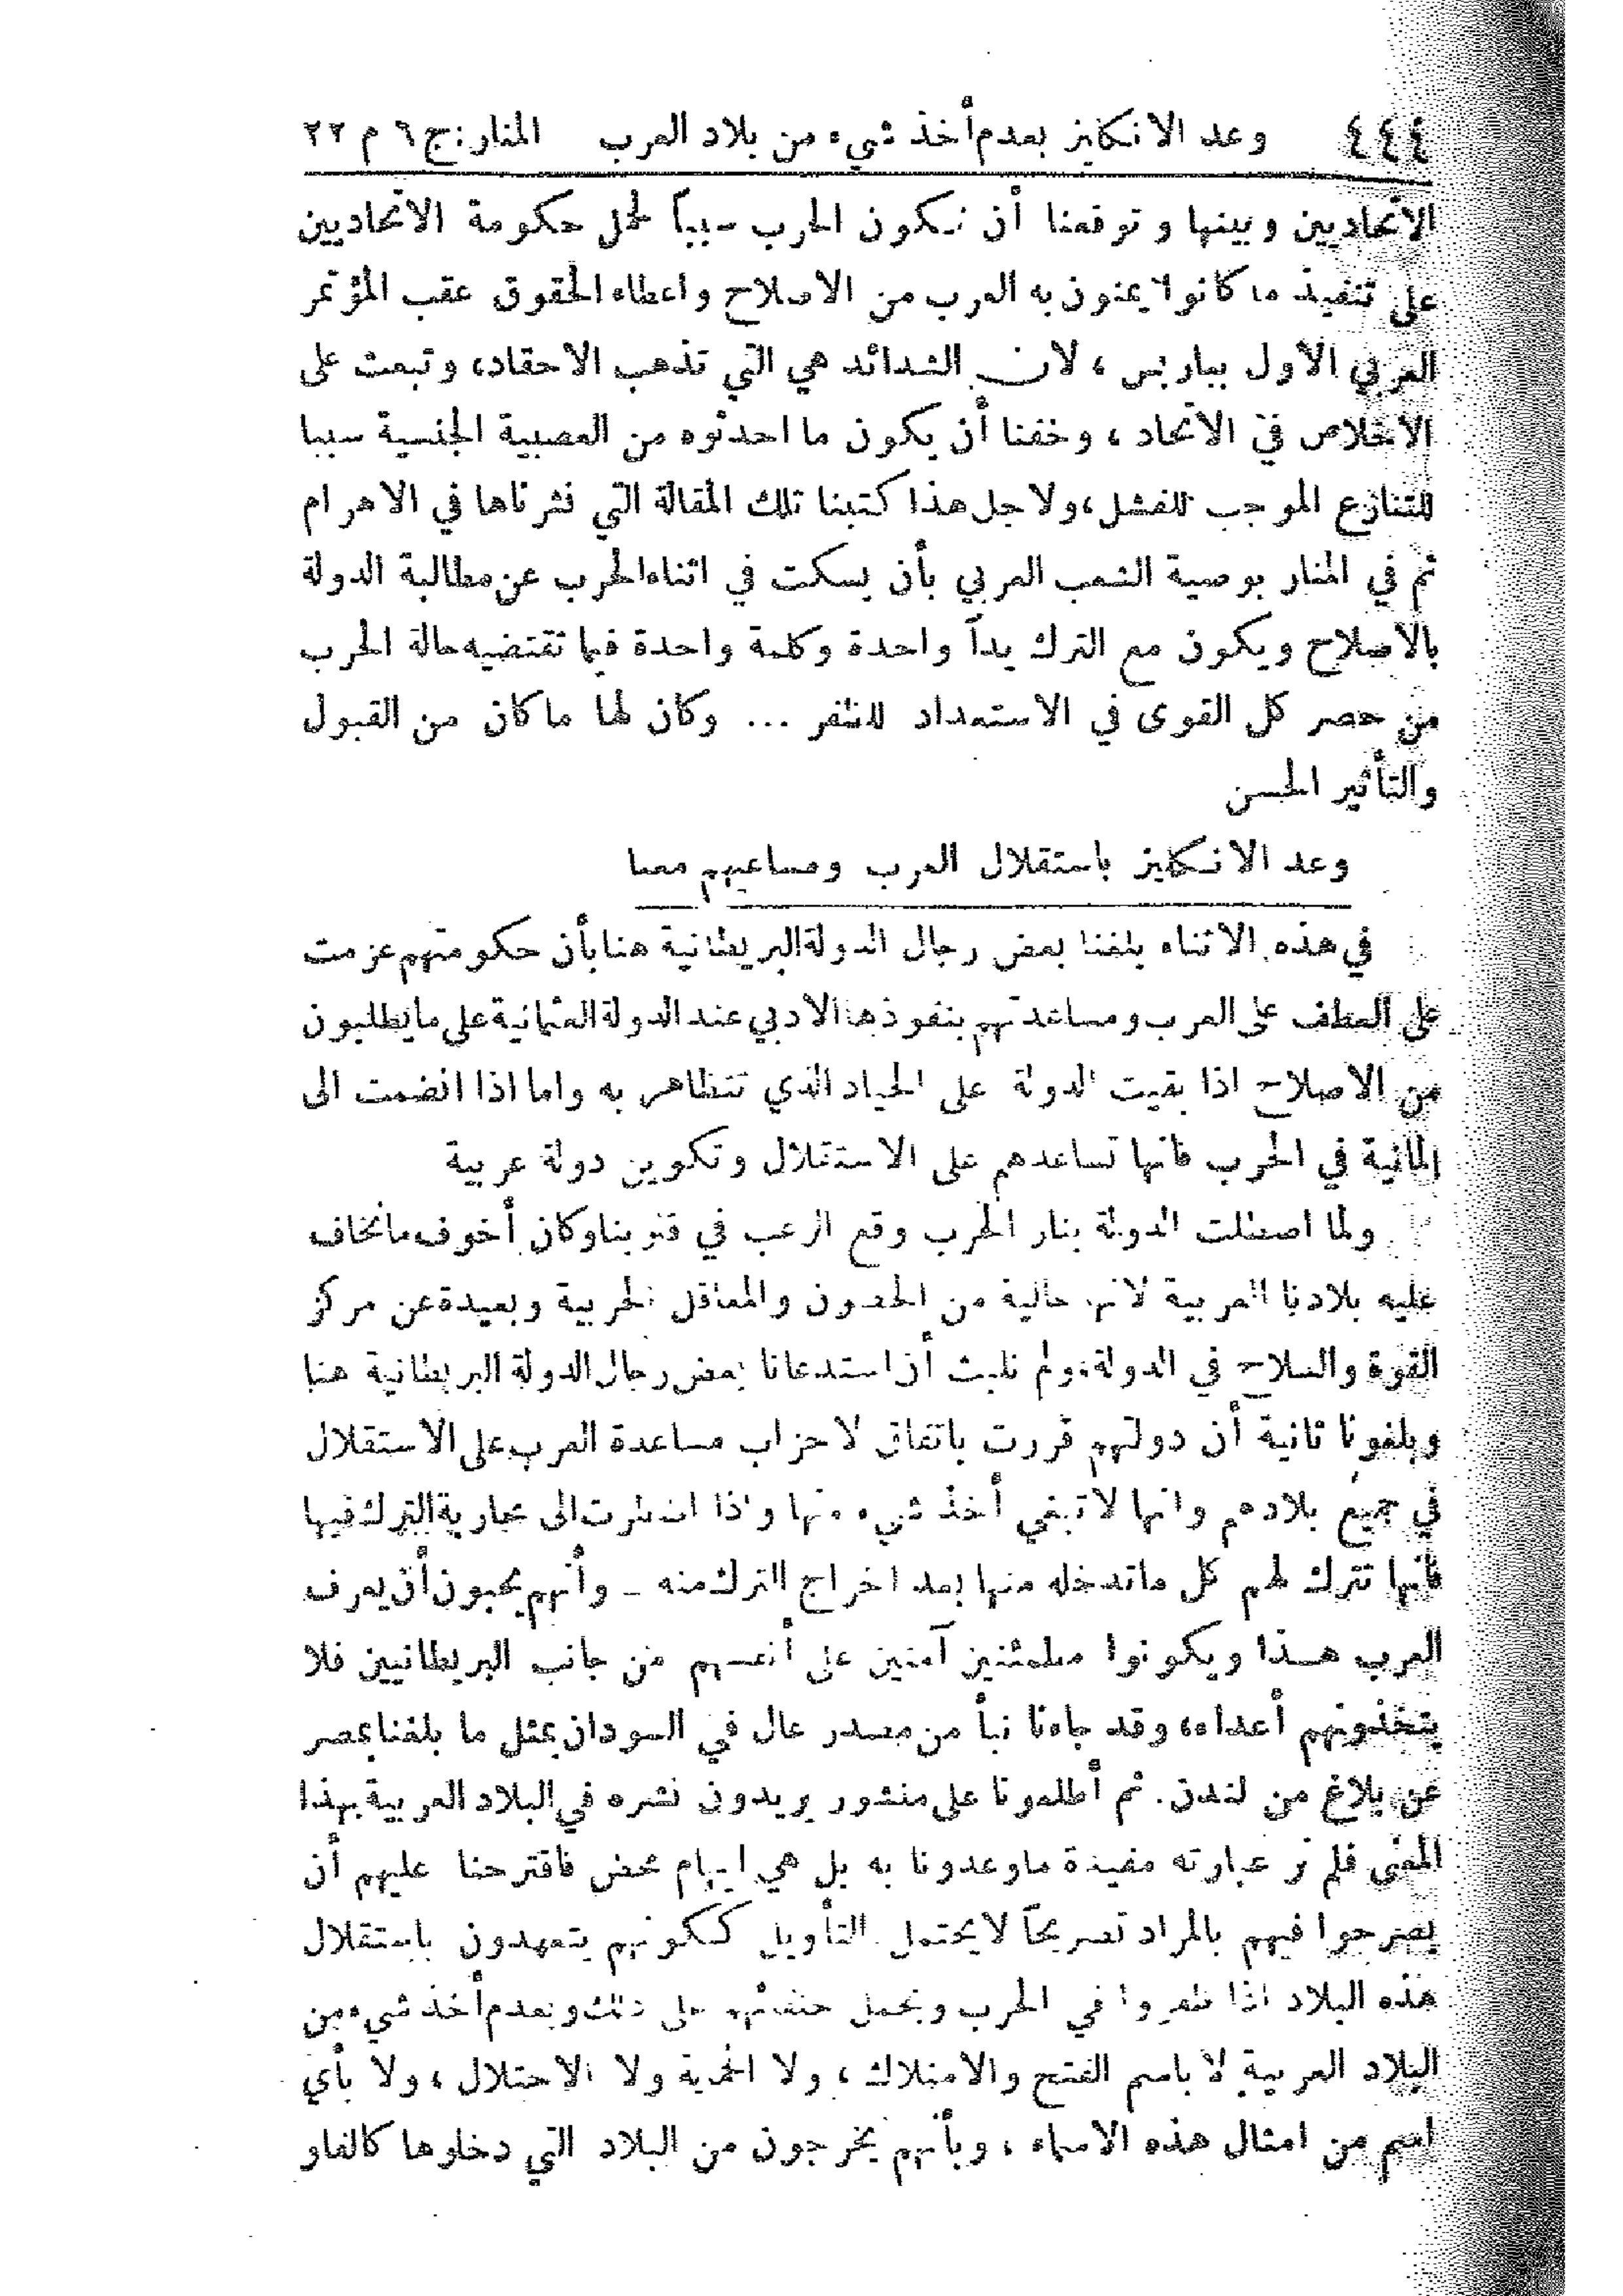 ٤٤٤ وعد الانكليز بعدم أخذ شيء من بلاد العرب المنار: ج ٦ م ٢٢
الاتحاديين وبينها وتوقعنا أن تكون الحرب سبباً لحمل حكومة الاتحاديين
على تنفيذ ما كانوا يمنون به العرب من الاصلاح واعطاء الحقوق عقب المؤتمر
العربي الأول بباريس ، لان الشدائد هي التي تذهب الاحقاد، وتبعث على
الاخلاص في الاتحاد ، وخفنا أن يكون ما احدثوه من العصبية الجنسية سببا
للتنازع الموجب للفشل، ولاجل هذا كتبنا تلك المقالة التي نشرناها في الاهرام
ثم في المنار بوصية الشعب العربي بأن يسكت في اثناء الحرب عن مطالبة الدولة
بالاصلاح ويكون مع الترك يداً واحدة وكلمة واحدة فيما تقتضيه حالة الحرب
من حصر كل القوى في الاستعداد للظفر ... وكان لها ما كان من القبول
والتأثير الحسن
وعد الانكليز باستقلال العرب ومساعيهم معنا
في هذه الاثناء بلغنا بعض رجال الدولة البريطانية هنا بأن حكومتهم عزمت
على العطف على العرب ومساعدتهم بنفوذها الادبي عند الدولة العثمانية على ما يطلبون
من الاصلاح اذا بقيت الدولة على الحياد الذي تتظاهر به واما اذا انضمت الى
المانية في الحرب فانها تساعدهم على الاستقلال وتكوين دولة عربية
ولما اصطلت الدولة بنار الحرب وقع الرعب في قلوبنا وكان أخوف ما نخاف
عليه بلادنا العربية لانها خالية من الحصون والمعاقل الحربية وبعيدة عن مركز
القوة والسلاح في الدولة، ولم نلبث أن استدعانا بعض رجال الدولة البريطانية هنا
وبلغونا ثانية أن دولتهم قررت باتفاق لاحزاب مساعدة العرب على الاستقلال
في جميع بلادهم وانها لا تبغي أخذ شيء منها واذا اضطرت الى محاربة الترك فيها
فانها تترك لهم كل ما تدخله منها بعد اخراج الترك منه ـ وأنهم يحبون أن يعرف
العرب هذا ويكونوا مطمئنين آمنين على أنفسهم من جانب البريطانيين فلا
يتخذونهم أعداء، وقد جاءنا نبأ من مصدر عال في السودان بمثل ما بلغنا بمصر
عن بلاغ من لندن. ثم أطلعونا على منشور يريدون نشره في البلاد العربية بهذا
المعنى فلم نر عبارته مفيدة ما وعدونا به بل هي ايهام محض فاقترحنا عليهم أن
يصرحوا فيهم بالمراد تصريحاً لا يحتمل التأويل ككونهم يتعهدون باستقلال
هذه البلاد اذا ظفروا في الحرب وبحمل حلفائهم على ذلك وبعدم أخذ شيء من
البلاد العربية لا باسم الفتح والامتلاك ، ولا الحماية ولا الاحتلال ، ولا بأي
اسم من امثال هذه الاسماء ، وبأنهم يخرجون من البلاد التي دخلوها كالفاو